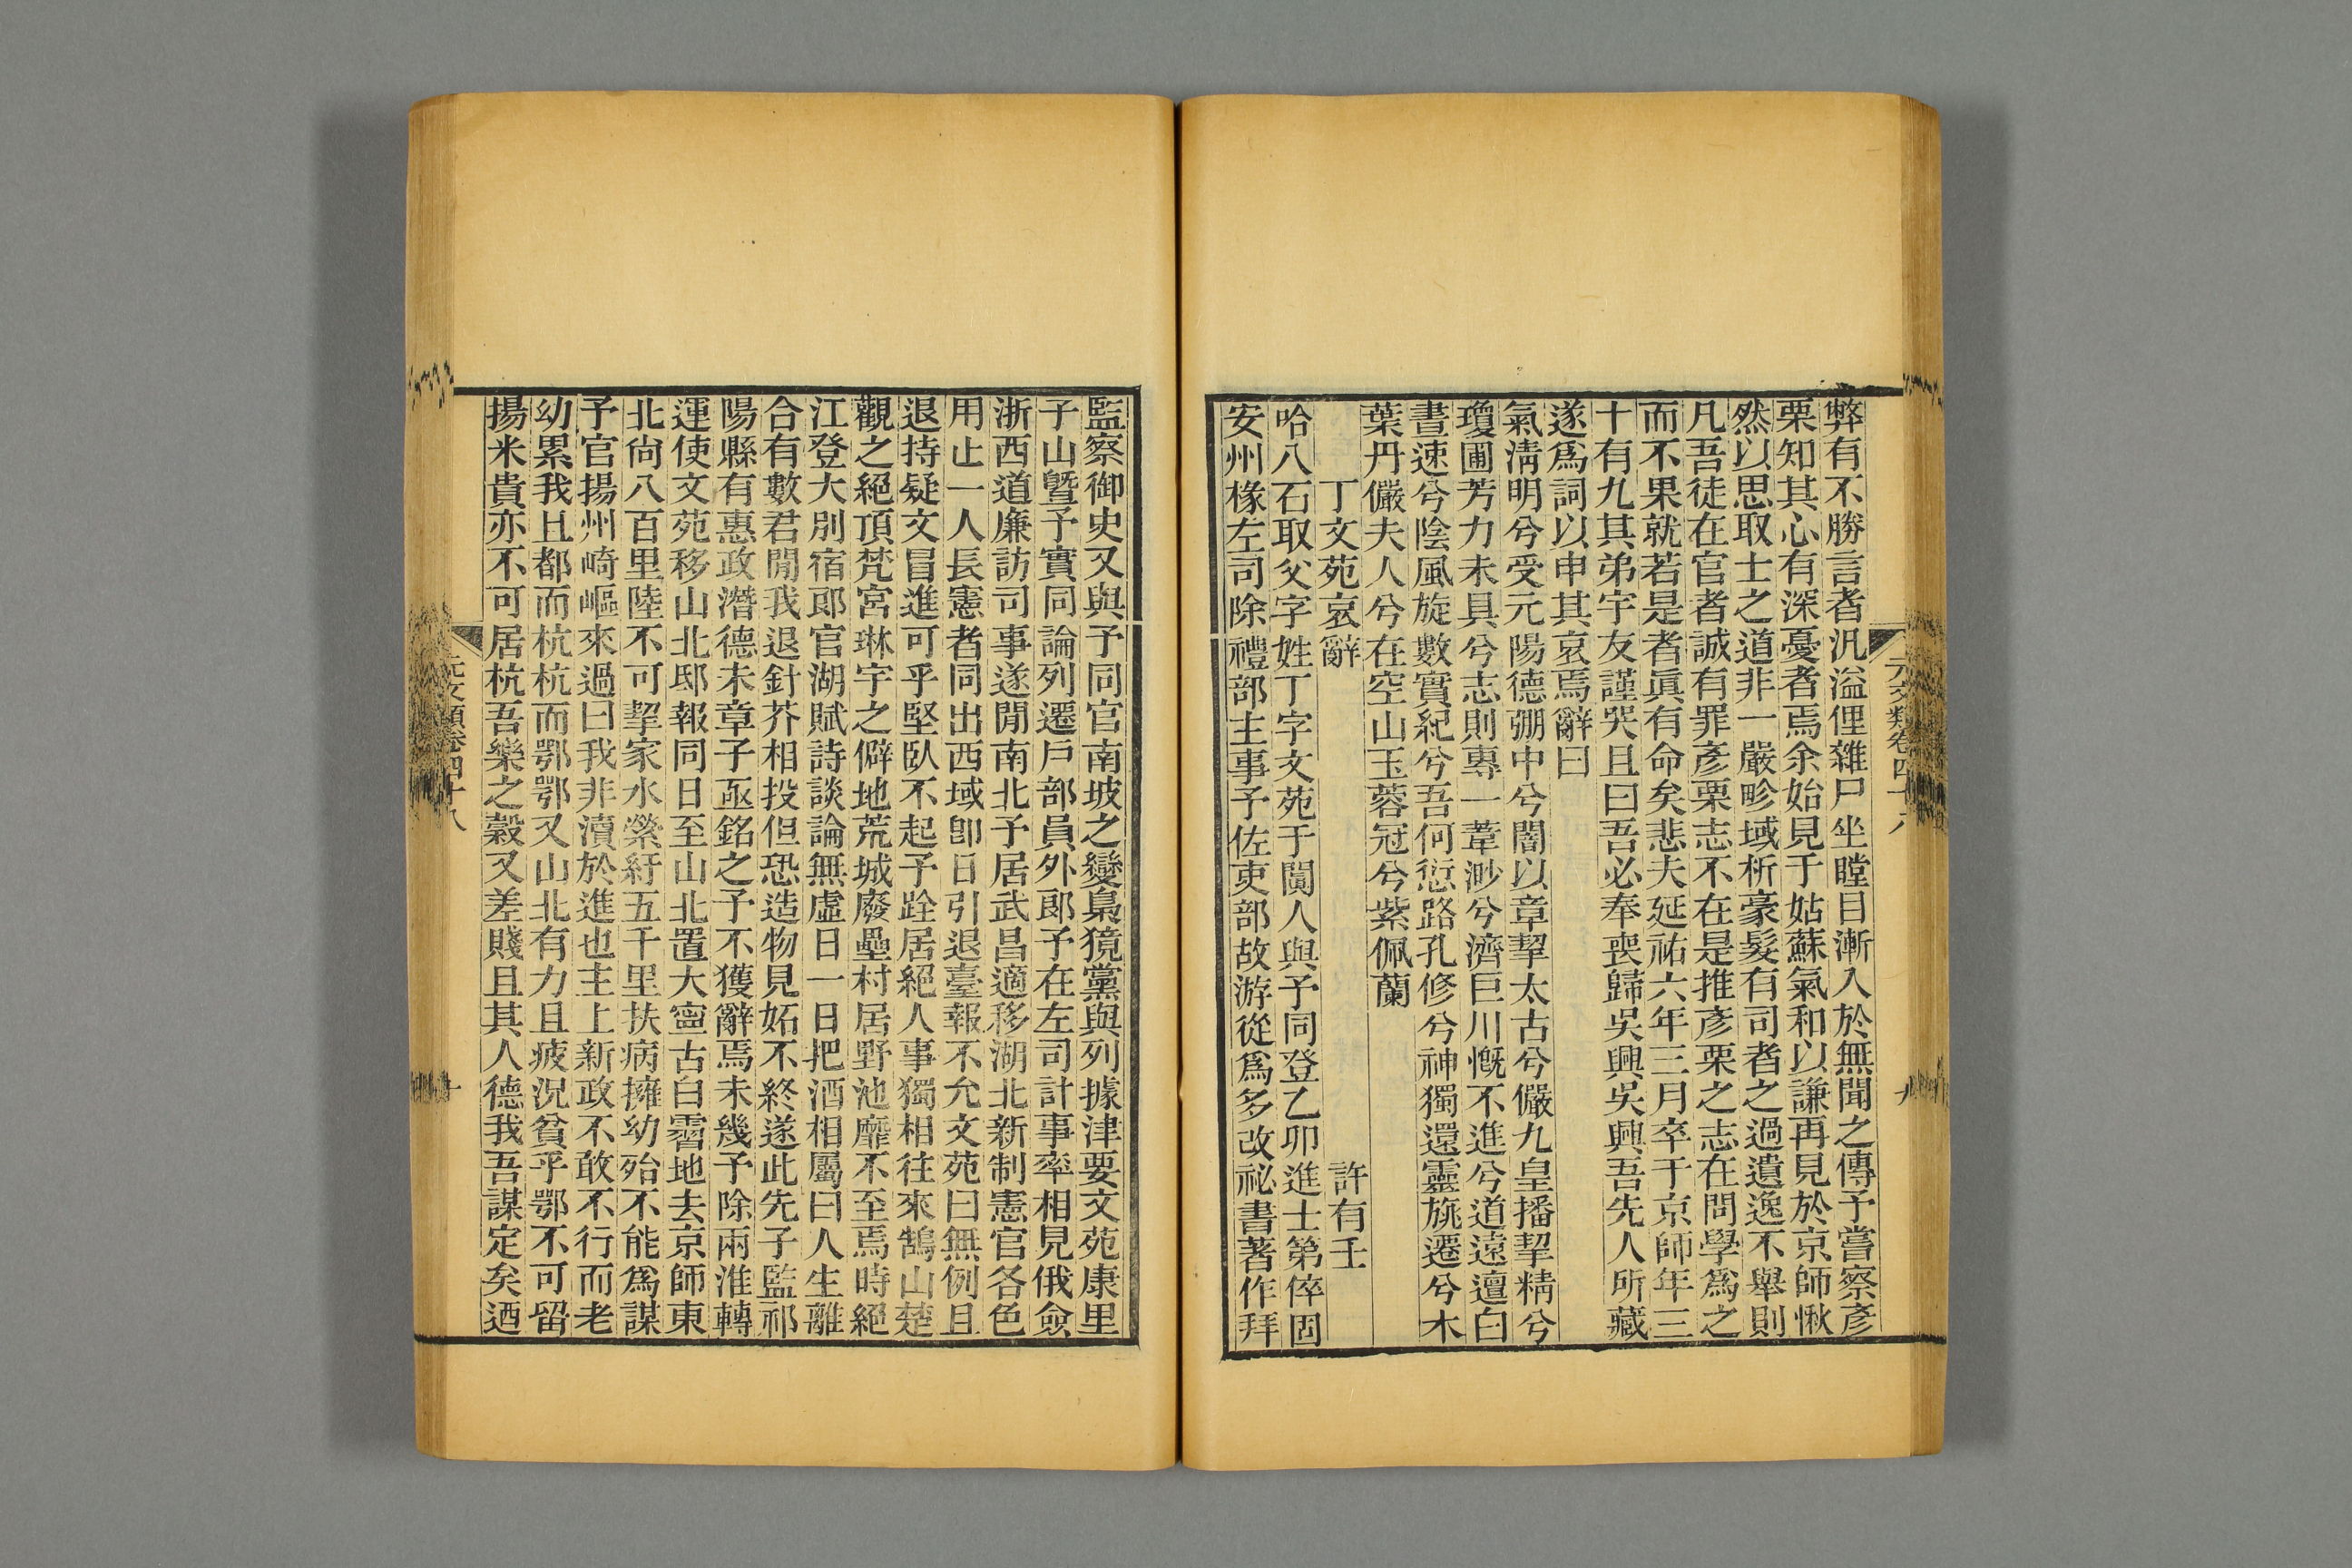 弊有不勝言者汎溢俚雜尸坐瞠目漸入於無聞之傳予嘗察彥
栗知其心有深憂者焉余始見于姑蘇氣和以謙再見於京師愀
然以思取士之道非一嚴畛域析豪髮有司者之過遺逸不舉則
凡吾徒在官者誠有罪彥栗志不在是推彥栗之志在問學爲之
而不果就若是者眞有命矣悲夫延祐六年三月卒于京師年三
十有九其弟宇友謹哭且曰吾必奉喪歸吳興吳興吾先人所藏
遂爲詞以申其哀焉辭曰
氣淸明兮受元陽德弸中兮闇以章挈太古兮儼九皇播挈精兮
瓊圃芳力未具兮志則專一葦渺兮濟巨川慨不進兮道遠邅白
晝速兮陰風旋數實紀兮吾何愆路孔修兮神獨還靈旐遷兮木
葉丹儼夫人兮在空山玉蓉冠兮紫佩蘭
丁文苑哀辭 許有壬
哈八石取父字姓丁字文苑于闐人與予同登乙卯進士第倅固
安州椽左司除禮部主事予佐吏部故游從爲多改祕書著作拜
元文類卷四十八
監察御史又與予同官南坡之變梟獍黨與列據津要文苑康里
子山曁予實同論列遷戶部員外郎予在左司計事率相見俄僉
浙西道廉訪司事遂閒南北予居武昌適移湖北新制憲官各色
用止一人長憲者同出西域卽日引退臺報不允文苑曰無例且
退持疑文冒進可乎堅臥不起予跧居絕人事獨相往來鵠山楚
觀之絕頂梵宮琳宇之僻地荒城廢壘村居野池靡不至焉時絕
江登大別宿郎官湖賦詩談論無虛日一日把酒相屬曰人生離
合有數君閒我退針芥相投但恐造物見妬不終遂此先子監祁
陽縣有惠政潛德未章子亟銘之予不獲辭焉未幾予除兩淮轉
運使文苑移山北邸報同日至山北置大寧古白霫地去京師東
北尙八百里陸不可挈家水縈紆五千里扶病擁幼殆不能爲謀
予官揚州崎嶇來過曰我非瀆於進也主上新政不敢不行而老
幼累我且都而杭杭而鄂鄂又山北有力且疲況貧乎鄂不可留
揚米貴亦不可居杭吾樂之穀又差賤且其人德我吾謀定矣迺
元文類卷四十八
十